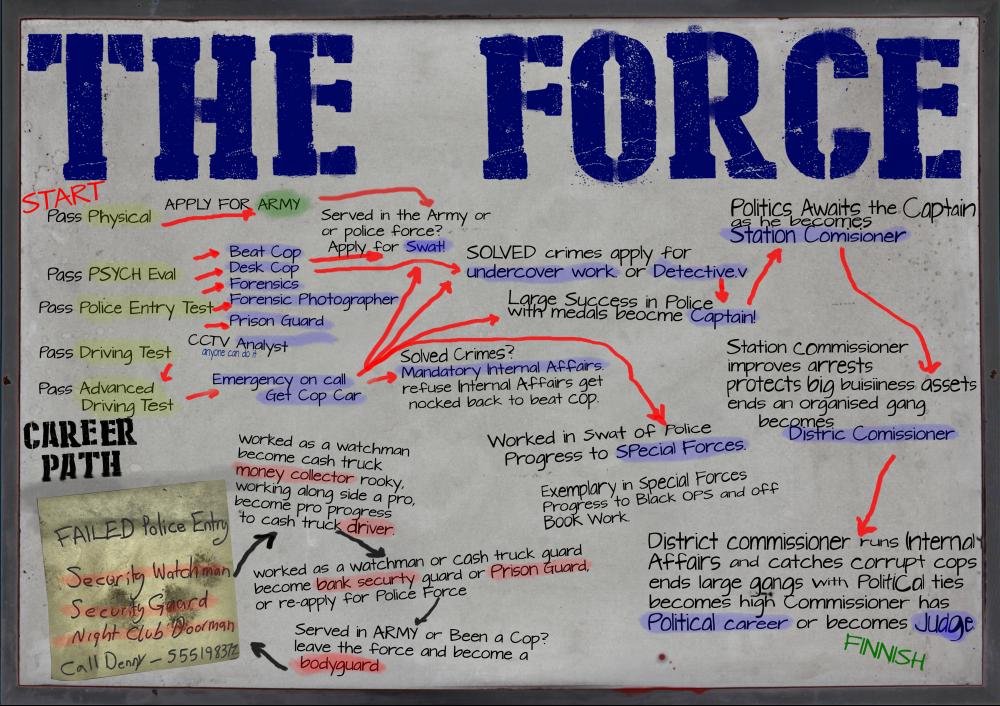 THE FORCE
START
Pass Physical
APPLY FOR ARMY
Served in the Army or
or police force?
Apply for Swat!
Pass PSYCH Eval
Pass Police Entry Test
Pass Driving Test
Pass Advanced
Driving Test
Beat Cop
Desk Cop
Forensics
Forensic Photographer
Prison Guard
CCTV Analyst
anyone can do it
Emergency on call
Get Cop Car
SOLVED crimes apply for
undercover work or Detective.v
Large Success in Police
with medals beocme Captain!
Solved Crimes?
Mandatory Internal Affairs.
refuse Internal Affairs get
nocked back to beat cop.
Politics Awaits the Captain
as he becomes
Station Comisioner
Station commissioner
improves arrests
protects big buisiiness assets
ends an organised gang
becomes
Distric Comissioner
Worked in Swat of Police
Progress to SPecial Forces.
Exemplary in Special Forces
Progress to Black OPS and off
Book Work.
District commissioner runs Internal
Affairs and catches corrupt cops
ends large gangs with PolitiCal ties
becomes high Commissioner has
Political career or becomes Judge
FINNISH
CAREER
PATH
FAILED Police Entry
Security Watchman
Security Guard
Night Club Doorman
Call Denny - 555198372
worked as a watchman
become cash truck
money collector rooky,
working along side a pro,
become pro progress
to cash truck driver.
worked as a watchman or cash truck guard
become bank securty guard or Prison Guard,
or re-apply for Police Force
Served in ARMY or Been a Cop?
leave the force and become a
bodyguard